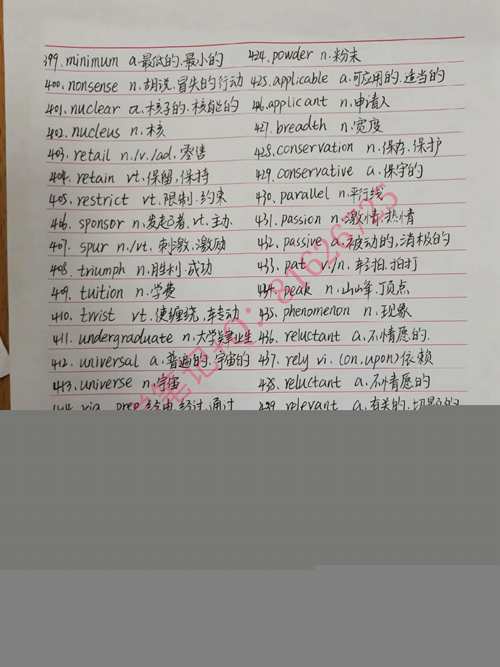 399. minimum a.最低的.最小的
400. nonsense n.胡说.冒失的行动
401. nuclear a.核子的.核能的
402. nucleus n.核
403. retail n./v./ad.零售
404. retain vt.保留,保持
405. restrict vt.限制.约束
406. sponsor n.发起者.vt.主办
407. spur n./vt.刺激.激励
408. triumph n.胜利.成功
409. tuition n.学费
410. twist vt.使缠绕,转动
411. undergraduate n.大学肄业生
412. universal a.普遍的.宇宙的
413. universe n.宇宙
414. via prep.经由.经过.通过
424. powder n.粉末
425. applicable a.可应用的.适当的
426. applicant n.申请人
427. breadth n.宽度
428. conservation n.保存.保护
429. conservative a.保守的
430. parallel n.平行线
431. passion n.激情.热情
432. passive a.被动的,消极的
433. pat v./n.轻拍.拍打
434. peak n.山峰.顶点
435. phenomenon n.现象
436. reluctant a.不情愿的.
437. rely vi.(on,upon)依赖
438. reluctant a.不情愿的
439. relevant a.有关的.切题的
笔记号:81626725